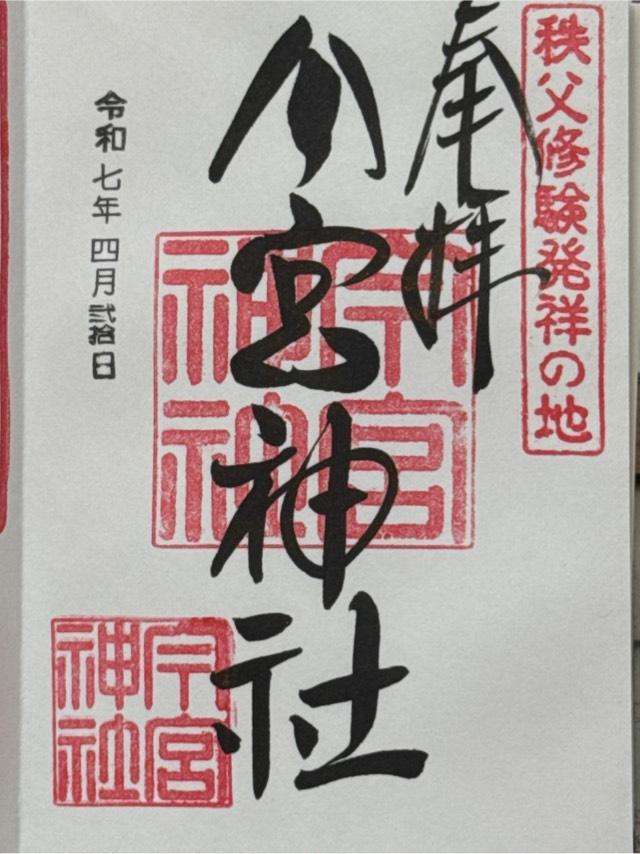 秩父修験発祥の地
奉拝
今宮神社
今宮
神社
令和七年四月弐拾日